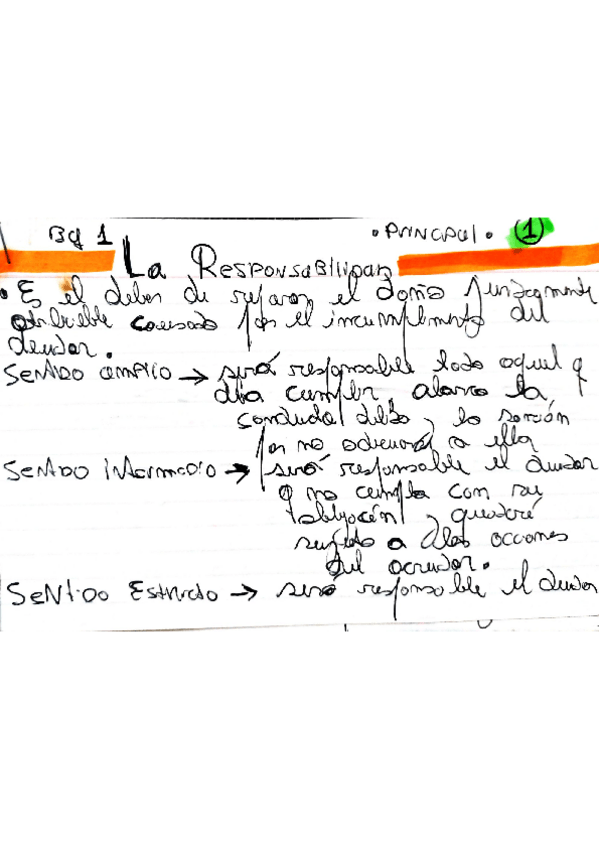 Bq 1 • PRINCIPAL • 1
La RESPONSABILIDAD
• Es el deber de reparar el daño jurídicamente
atribuible causado por el incumplimiento del
deudor.
SENTIDO AMPLIO → será responsable todo aquel q
deba cumplir,
conducta debida y la sanción
por no adecuarse a ella
SENTIDO INTERMEDIO → será responsable el deudor
q no cumpla con su
obligación y quedaré
sujeto a las acciones
del acreedor.
SENTIDO ESTRICTO → será responsable el deudor